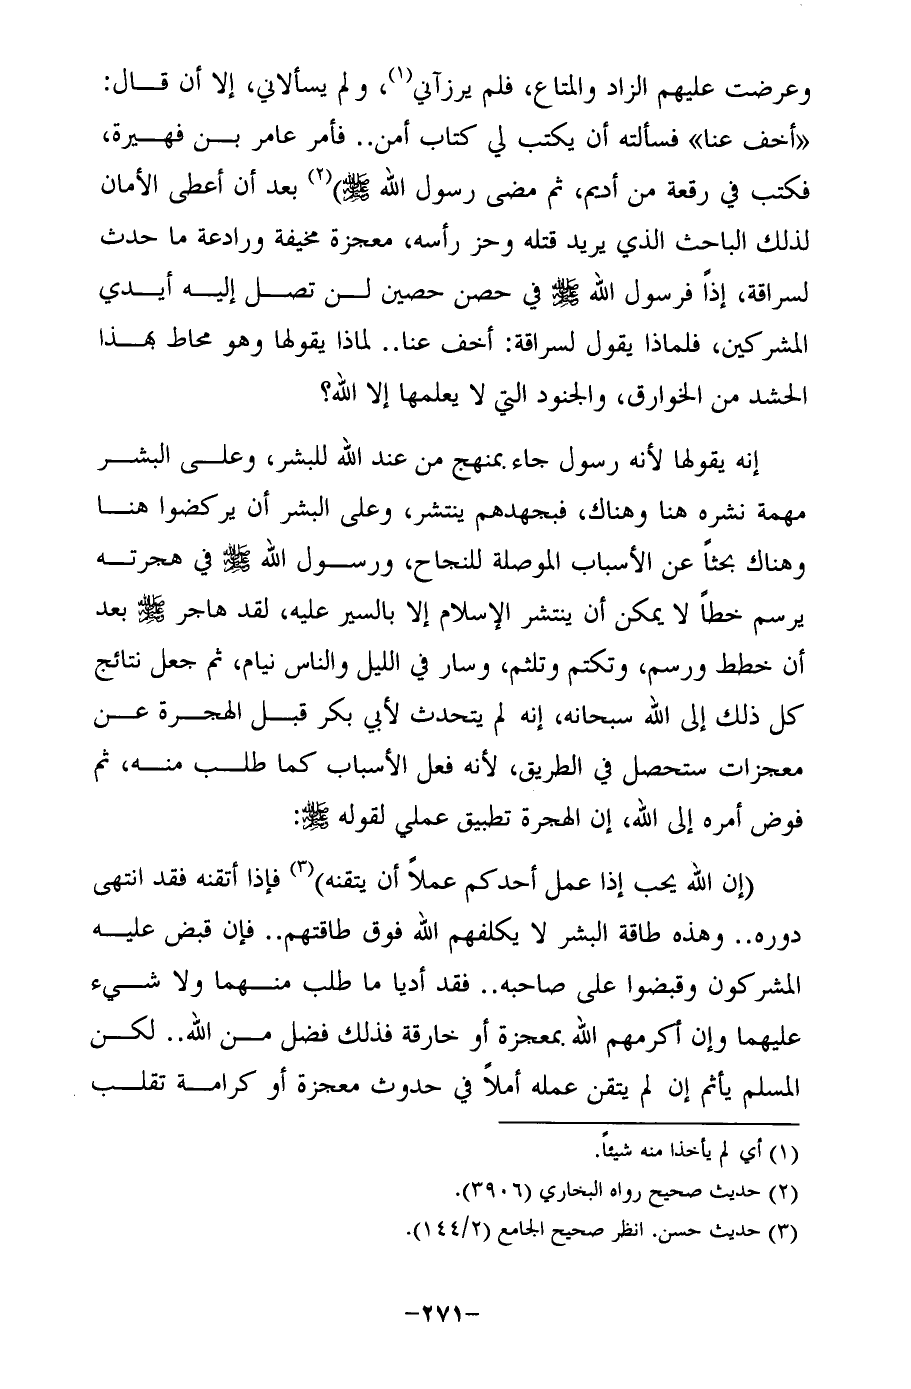 وعرضت عليهم الزاد والمتاع، فلم يرزآني(١)، ولم يسألاني، إلا أن قـــال:
«أخف عنا» فسألته أن يكتب لي كتاب أمن.. فأمر عامر بـــن فهـــيرة،
فكتب في رقعة من أديم، ثم مضى رسول الله ﷺ)(٢) بعد أن أعطى الأمان
لذلك الباحث الذي يريد قتله وحز رأسه، معجزة مخيفة ورادعة ما حدث
لسراقة، إذاً فرسول الله ﷺ في حصن حصين لـــن تصـــل إليـــه أيـــدي
المشركين، فلماذا يقول لسراقة: أخف عنا.. لماذا يقولها وهو محاط بهـــذا
الحشد من الخوارق، والجنود التي لا يعلمها إلا الله؟
إنه يقولها لأنه رسول جاء بمنهج من عند الله للبشر، وعلـــى البشـــر
مهمة نشره هنا وهناك، فبجهدهم ينتشر، وعلى البشر أن يركضوا هنـــا
وهناك بحثاً عن الأسباب الموصلة للنجاح، ورســـول الله ﷺ في هجرتـــه
يرسم خطاً لا يمكن أن ينتشر الإسلام إلا بالسير عليه، لقد هاجر ﷺ بعد
أن خطط ورسم، وتكتم وتلثم، وسار في الليل والناس نيام، ثم جعل نتائج
كل ذلك إلى الله سبحانه، إنه لم يتحدث لأبي بكر قبـــل الهجـــرة عـــن
معجزات ستحصل في الطريق، لأنه فعل الأسباب كما طلـــب منـــه، ثم
فوض أمره إلى الله، إن الهجرة تطبيق عملي لقوله ﷺ:
(إن الله يحب إذا عمل أحدكم عملاً أن يتقنه)(٣) فإذا أتقنه فقد انتهى
دوره.. وهذه طاقة البشر لا يكلفهم الله فوق طاقتهم.. فإن قبض عليـــه
المشركون وقبضوا على صاحبه.. فقد أديا ما طلب منـــهما ولا شـــيء
عليهما وإن أكرمهم الله بمعجزة أو خارقة فذلك فضل مـــن الله.. لكـــن
المسلم يأثم إن لم يتقن عمله أملاً في حدوث معجزة أو كرامـــة تقلـــب
(١) أي لم يأخذا منه شيئاً.
(٢) حديث صحيح رواه البخاري (٣٩٠٦).
(٣) حديث حسن. انظر صحيح الجامع (١٤٤/٢).
-٢٧١-